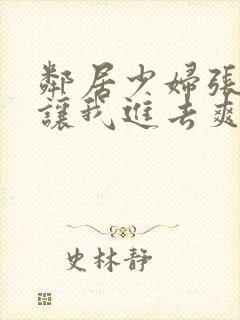 鄰居少婦張
讓我進去爽
史林靜